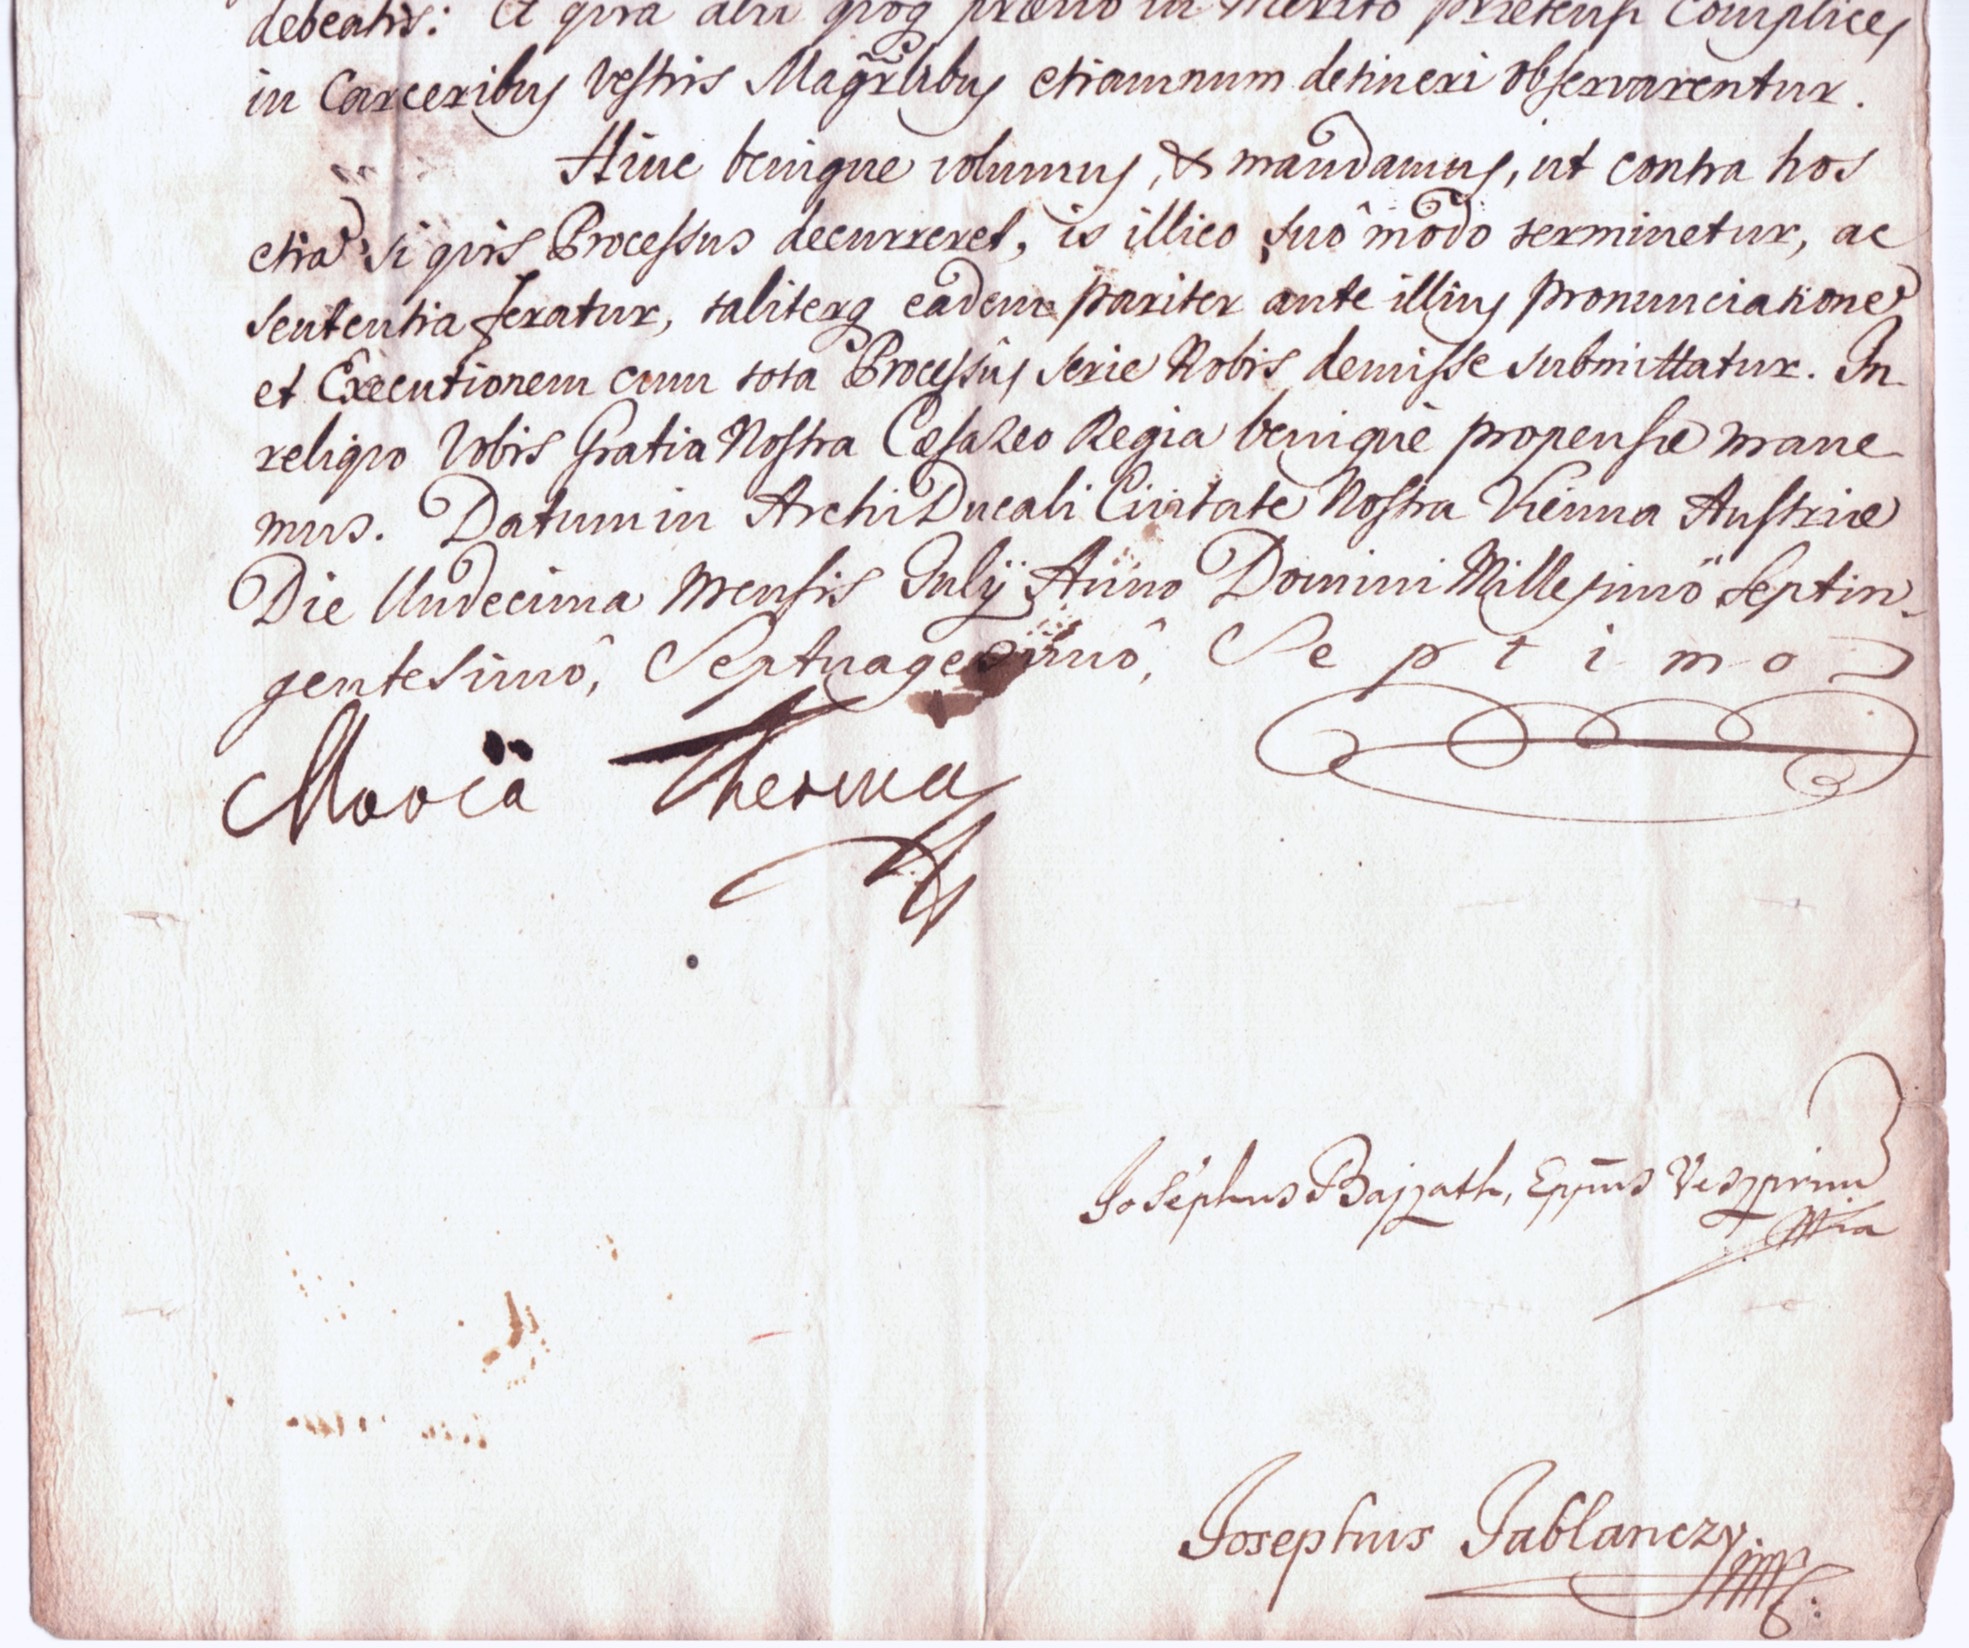 debeatis: Et quia alii quoq praevio in Merito praetensi Complices
in Carceribus Vestris Magrlibus etiamnum detineri observarentur.
Hinc benigne volumus, & mandamus, ut contra hos
etia si quis Processus decurreret, is illico suô modô terminetur, ac
Sententia feratur, taliterq eadem pariter ante illius pronunciatione
et Executionem cum tota Processûs serie Nobis demisse submittatur. In
reliquo Vobis Gratia Nostra Caesareo Regia benigne propensae mane-
mus. Datum in ArchiDucali Civitate Nostra Vienna Austriae
Die Undecima Mensis Julÿ Anno Domini Millesimô Septin-
gentesimô, Septuagesimô, Septimo
Maria Theresia
Josephus Bajzath, Eppus Veszprim
mpria
Josephus Jablanczy